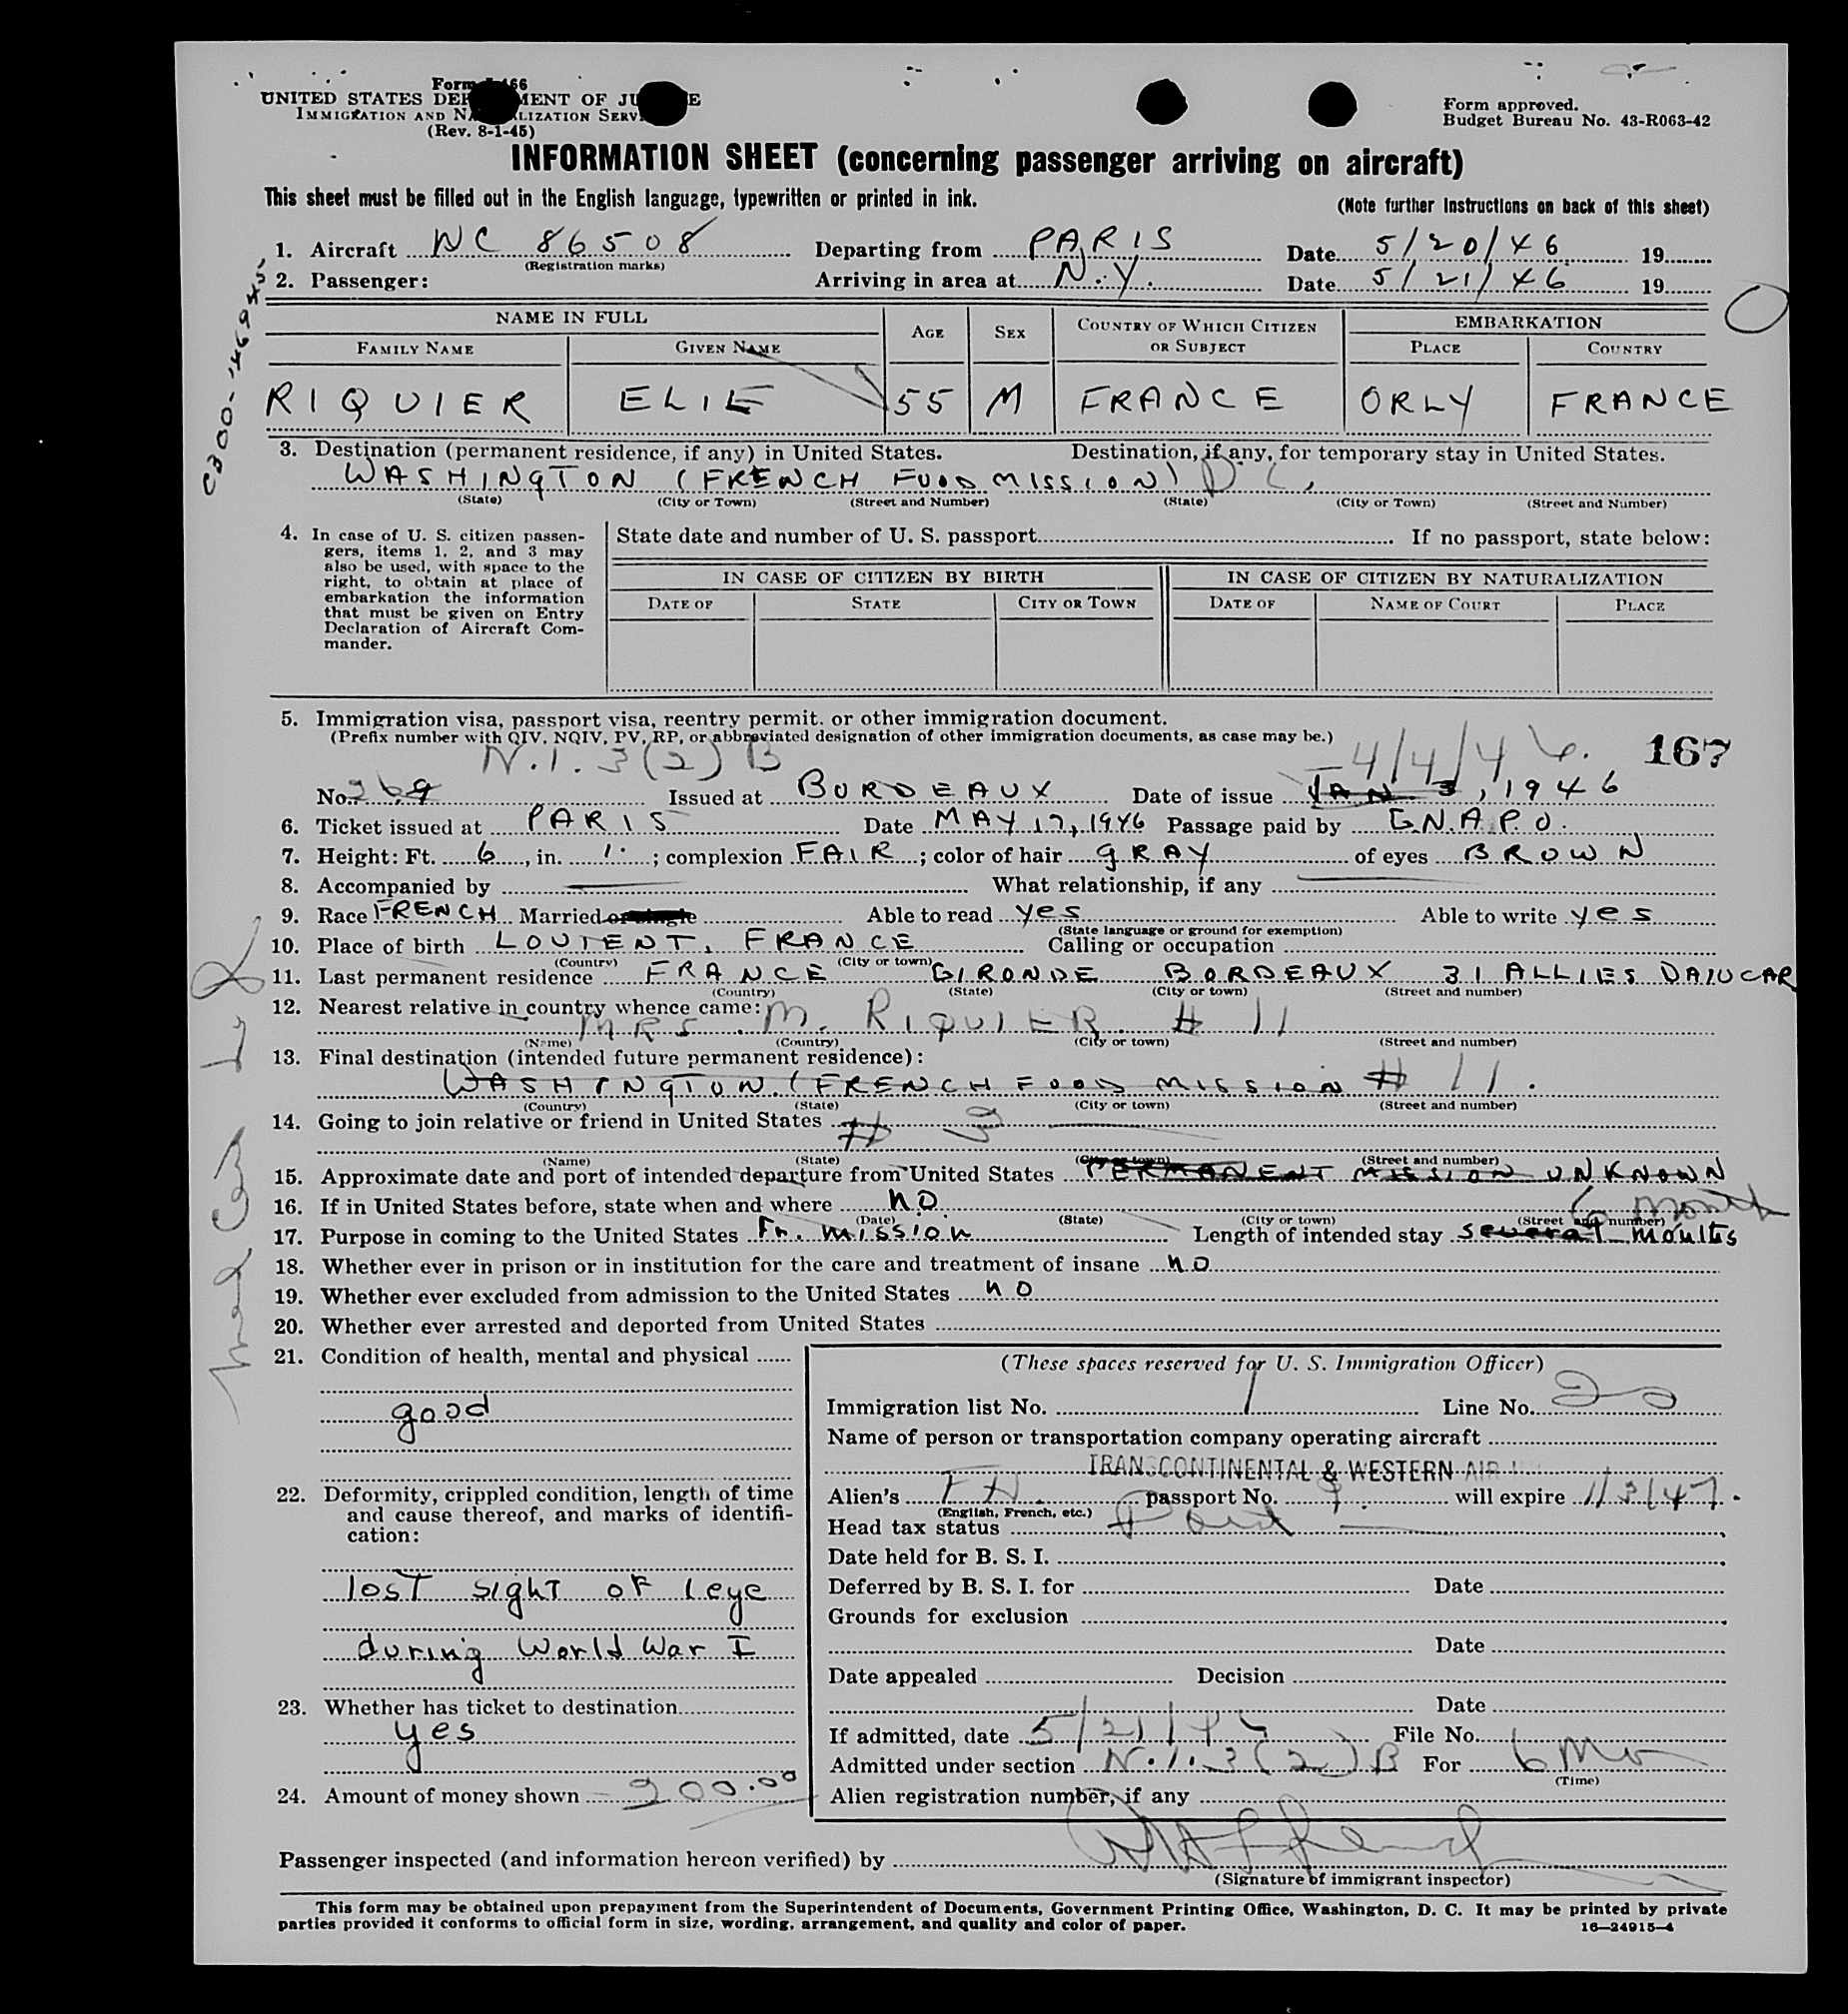 Form 166
UNITED STATES DEP MENT OF JU E
IMMIGRATION AND NA LIZATION SERV
(Rev. 8-1-45)
Form approved.
Budget Bureau No. 43-R063-42
INFORMATION SHEET (concerning passenger arriving on aircraft)
This sheet must be filled out in the English language, typewritten or printed in ink.
(Note further instructions on back of this sheet)
1. Aircraft NC 86508 Departing from PARIS Date 5/20/46 19
(Registration marks)
2. Passenger: Arriving in area at N.Y. Date 5/21/46 19
NAME IN FULL AGE SEX COUNTRY OF WHICH CITIZEN OR SUBJECT EMBARKATION
FAMILY NAME GIVEN NAME PLACE COUNTRY
RIQUIER ELIE 55 M FRANCE ORLY FRANCE
3. Destination (permanent residence, if any) in United States. Destination, if any, for temporary stay in United States.
WASHINGTON (FRENCH FOOD MISSION) D C,
(State) (City or Town) (Street and Number) (State) (City or Town) (Street and Number)
4. In case of U. S. citizen passengers, items 1, 2, and 3 may also be used, with space to the right, to obtain at place of embarkation the information that must be given on Entry Declaration of Aircraft Commander.
State date and number of U. S. passport If no passport, state below:
IN CASE OF CITIZEN BY BIRTH IN CASE OF CITIZEN BY NATURALIZATION
DATE OF STATE CITY OR TOWN DATE OF NAME OF COURT PLACE
5. Immigration visa, passport visa, reentry permit, or other immigration document.
(Prefix number with QIV, NQIV, PV, RP, or abbreviated designation of other immigration documents, as case may be.)
N.I. 3(2) B 4/4/46. 167
No. 269 Issued at BORDEAUX Date of issue JAN 3, 1946
6. Ticket issued at PARIS Date MAY 17, 1946 Passage paid by G.N.A.P.O.
7. Height: Ft. 6, in. 1.; complexion FAIR; color of hair GRAY of eyes BROWN
8. Accompanied by — What relationship, if any —
9. Race FRENCH Married or single Able to read yes Able to write yes
(State language or ground for exemption)
10. Place of birth LOUIENT, FRANCE Calling or occupation
(Country) (City or town)
11. Last permanent residence FRANCE GIRONDE BORDEAUX 31 ALLIES DAIUCAR
(Country) (State) (City or town) (Street and number)
12. Nearest relative in country whence came:
MRS. M. RIQUIER. # 11
(Name) (Country) (City or town) (Street and number)
13. Final destination (intended future permanent residence):
WASHINGTON. (FRENCH FOOD MISSION # 11.
(Country) (State) (City or town) (Street and number)
14. Going to join relative or friend in United States # 3
(Name) (State) (City or town) (Street and number)
15. Approximate date and port of intended departure from United States PERMANENT MISSION UNKNOWN
16. If in United States before, state when and where NO 6 month
(Date) (State) (City or town) (Street and number)
17. Purpose in coming to the United States Fn. mission Length of intended stay several months
18. Whether ever in prison or in institution for the care and treatment of insane NO
19. Whether ever excluded from admission to the United States NO
20. Whether ever arrested and deported from United States
21. Condition of health, mental and physical
good
22. Deformity, crippled condition, length of time and cause thereof, and marks of identification:
lost sight of 1 eye
during World War I
23. Whether has ticket to destination
yes
24. Amount of money shown 200.00
(These spaces reserved for U. S. Immigration Officer)
Immigration list No. 1 Line No. 20
Name of person or transportation company operating aircraft
TRANSCONTINENTAL & WESTERN AIR
Alien's passport No. 9. will expire 1/3/47.
(English, French, etc.)
Head tax status Paid
Date held for B. S. I.
Deferred by B. S. I. for Date
Grounds for exclusion
Date
Date appealed Decision
Date
If admitted, date 5/21/46 File No.
Admitted under section N.I. 3(2)B For 6 Mo
(Time)
Alien registration number, if any
Passenger inspected (and information hereon verified) by
(Signature of immigrant inspector)
This form may be obtained upon prepayment from the Superintendent of Documents, Government Printing Office, Washington, D. C. It may be printed by private
parties provided it conforms to official form in size, wording, arrangement, and quality and color of paper. 16—24915-4